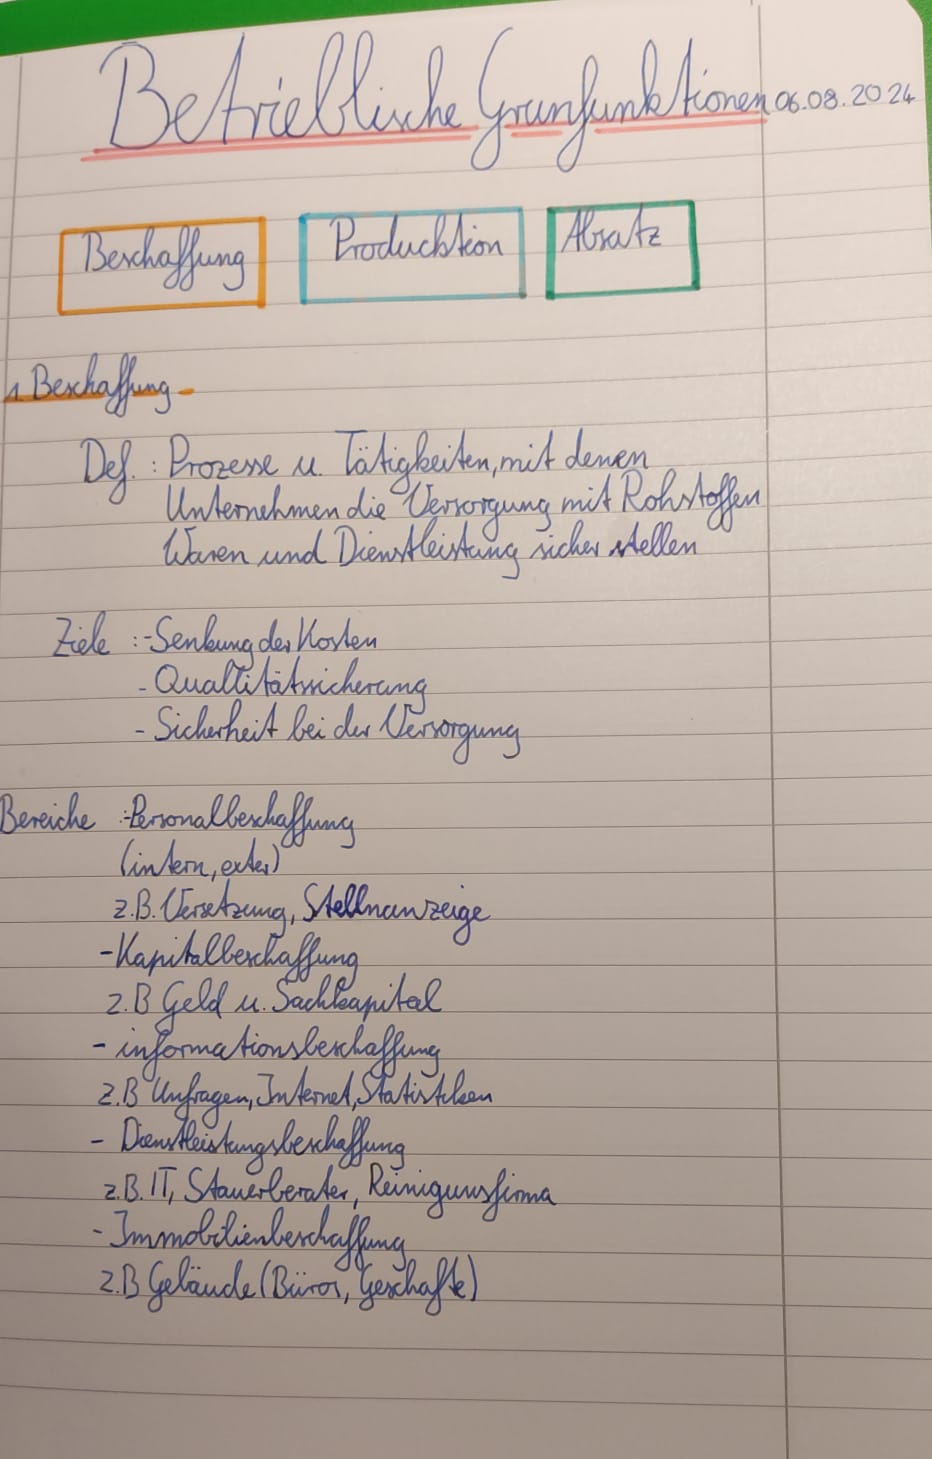 Betriebliche Grunfunktionen 06.08.2024
Beschaffung Producktion Absatz
1. Beschaffung -
Def.: Prozesse u. Tätigkeiten, mit denen
Unternehmen die Versorgung mit Rohstoffen
Waren und Dienstleistung sicher stellen
Ziele :- Senkung der Kosten
- Qualtitätssicherung
- Sicherheit bei der Versorgung
Bereiche :- Personalbeschaffung
(intern, exter)
z.B. Versetzung, Stellnanzeige
- Kapitalbeschaffung
z.B Geld u. Sachkapital
- informationsbeschaffung
z.B Umfragen, Internet, Statistiken
- Dienstleistungsbeschaffung
z.B. IT, Stauerberater, Reinigunsfirma
- Immobilienbeschaffung
z.B Gebäude (Büros, Geschäfte)